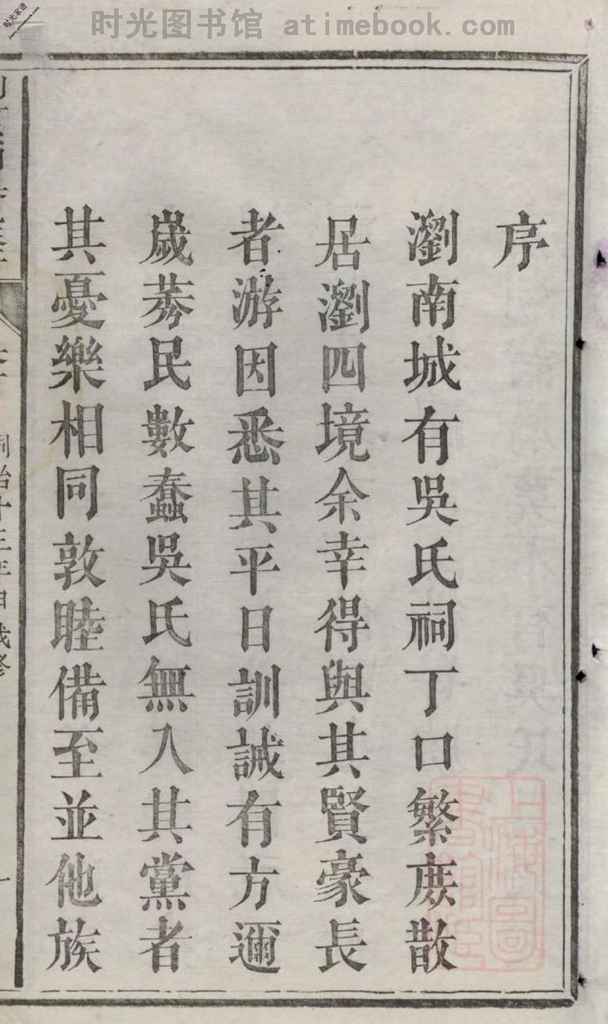 时光图书馆 atimebook.com
序
瀏南城有吳氏祠丁口繁庶散
居瀏四境余幸得與其賢豪長
者游因悉其平日訓誡有方邇
嵗莠民數蠢吳氏無入其黨者
其憂樂相同敦睦備至並他族